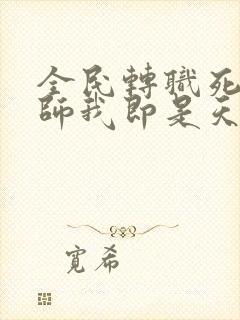 全民轉職死
師我即是天
寬希